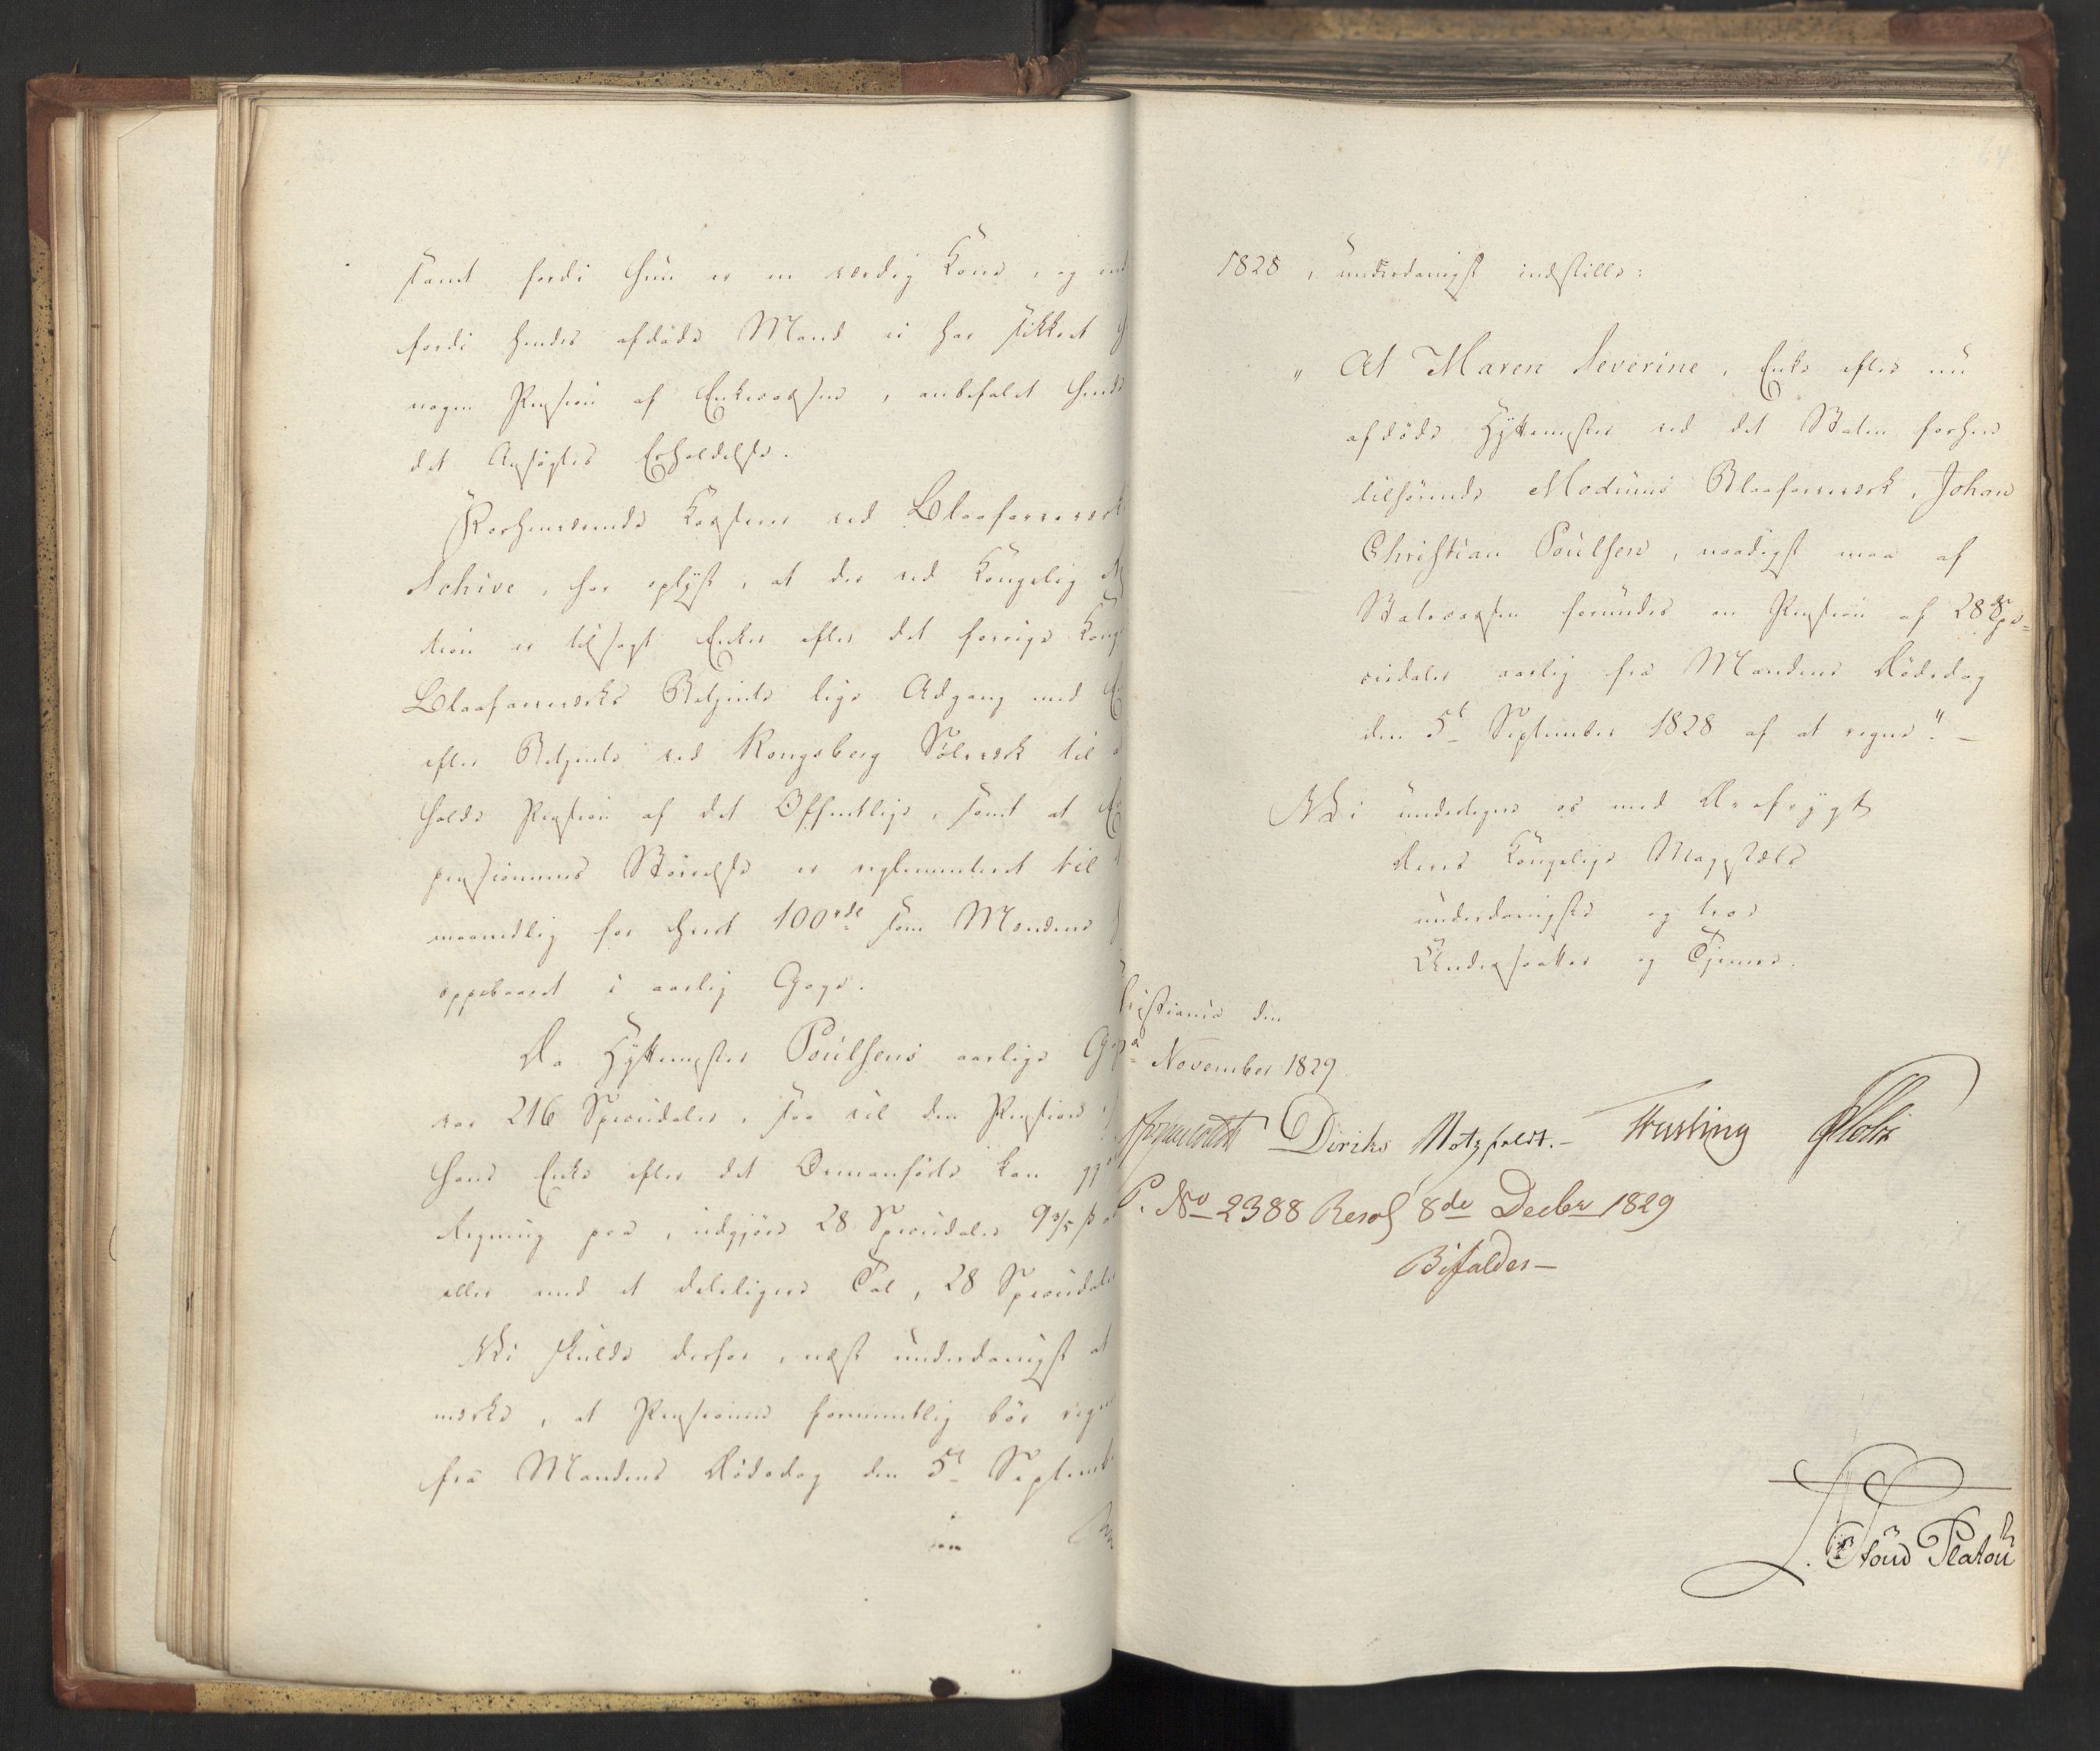 samt fordi hun er en værdig Kone, og end
fordi hendes afdøde Mand ei har sikkret
nogen Pension af Enkecassen, anbefalet hendes
det Ansøgtes Erholdelse.
Forhenværende Kasserer ved Blaafarveværk
Schive, har oplyst, at der ved Kongelig
tion er tilsagt Enker efter det forrige Konge
Blaafarveværks Betjente lige Adgang med
efter Betjente ved Kongsberg Sølvværk til
holde Pension af det Offentlige, samt at
pensionens Størrelse er reglementeret til
maanedlig for hvert 100 rdl som Mændene
oppebaaret i aarlig Gage.
Da Hyttemester Poulsens aarlige Ga
var 216 Speciedaler, saa vil den Pension
hans Enke efter det Ovenanførte kan gjø
Regning paa, udgjøre 28 Speciedaler 9 3/5 ß
eller med et deleligere Tal, 28 Speciedaler
Vi skulde derfor, næst underdanigst at
mærke, at Pensionen formeentlig bør regne
fra Mandens Dødsdag den 5t Septemb
1828, underdanigst indstille:
"At Maren Severine, Enke efter nu
afdøde Hyttemester ved det Staten forhen
tilhørende Modums Blaafarveværk, Johan
Christian Poulsen, naadigst maa af
Statscassen forundes en Pension af 28 Spe=
ciedaler aarlig fra Mandens Dødsdag
den 5t September 1828 af at regne". –
Vi undertegne os med Ærefrygt
Deres Kongelige Majestæts
underdanigste og troe
Undersaatter og Tjenere.
Christiania den
November 1829.
Diriks Motzfeldt. – Fasting
P. No 2388 Resol 8de Decbr 1829
Bifaldes –
Stoud Platou